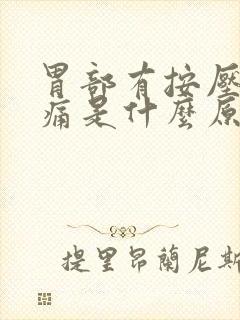 胃部有按壓
痛是什麼原
提里昂蘭尼斯